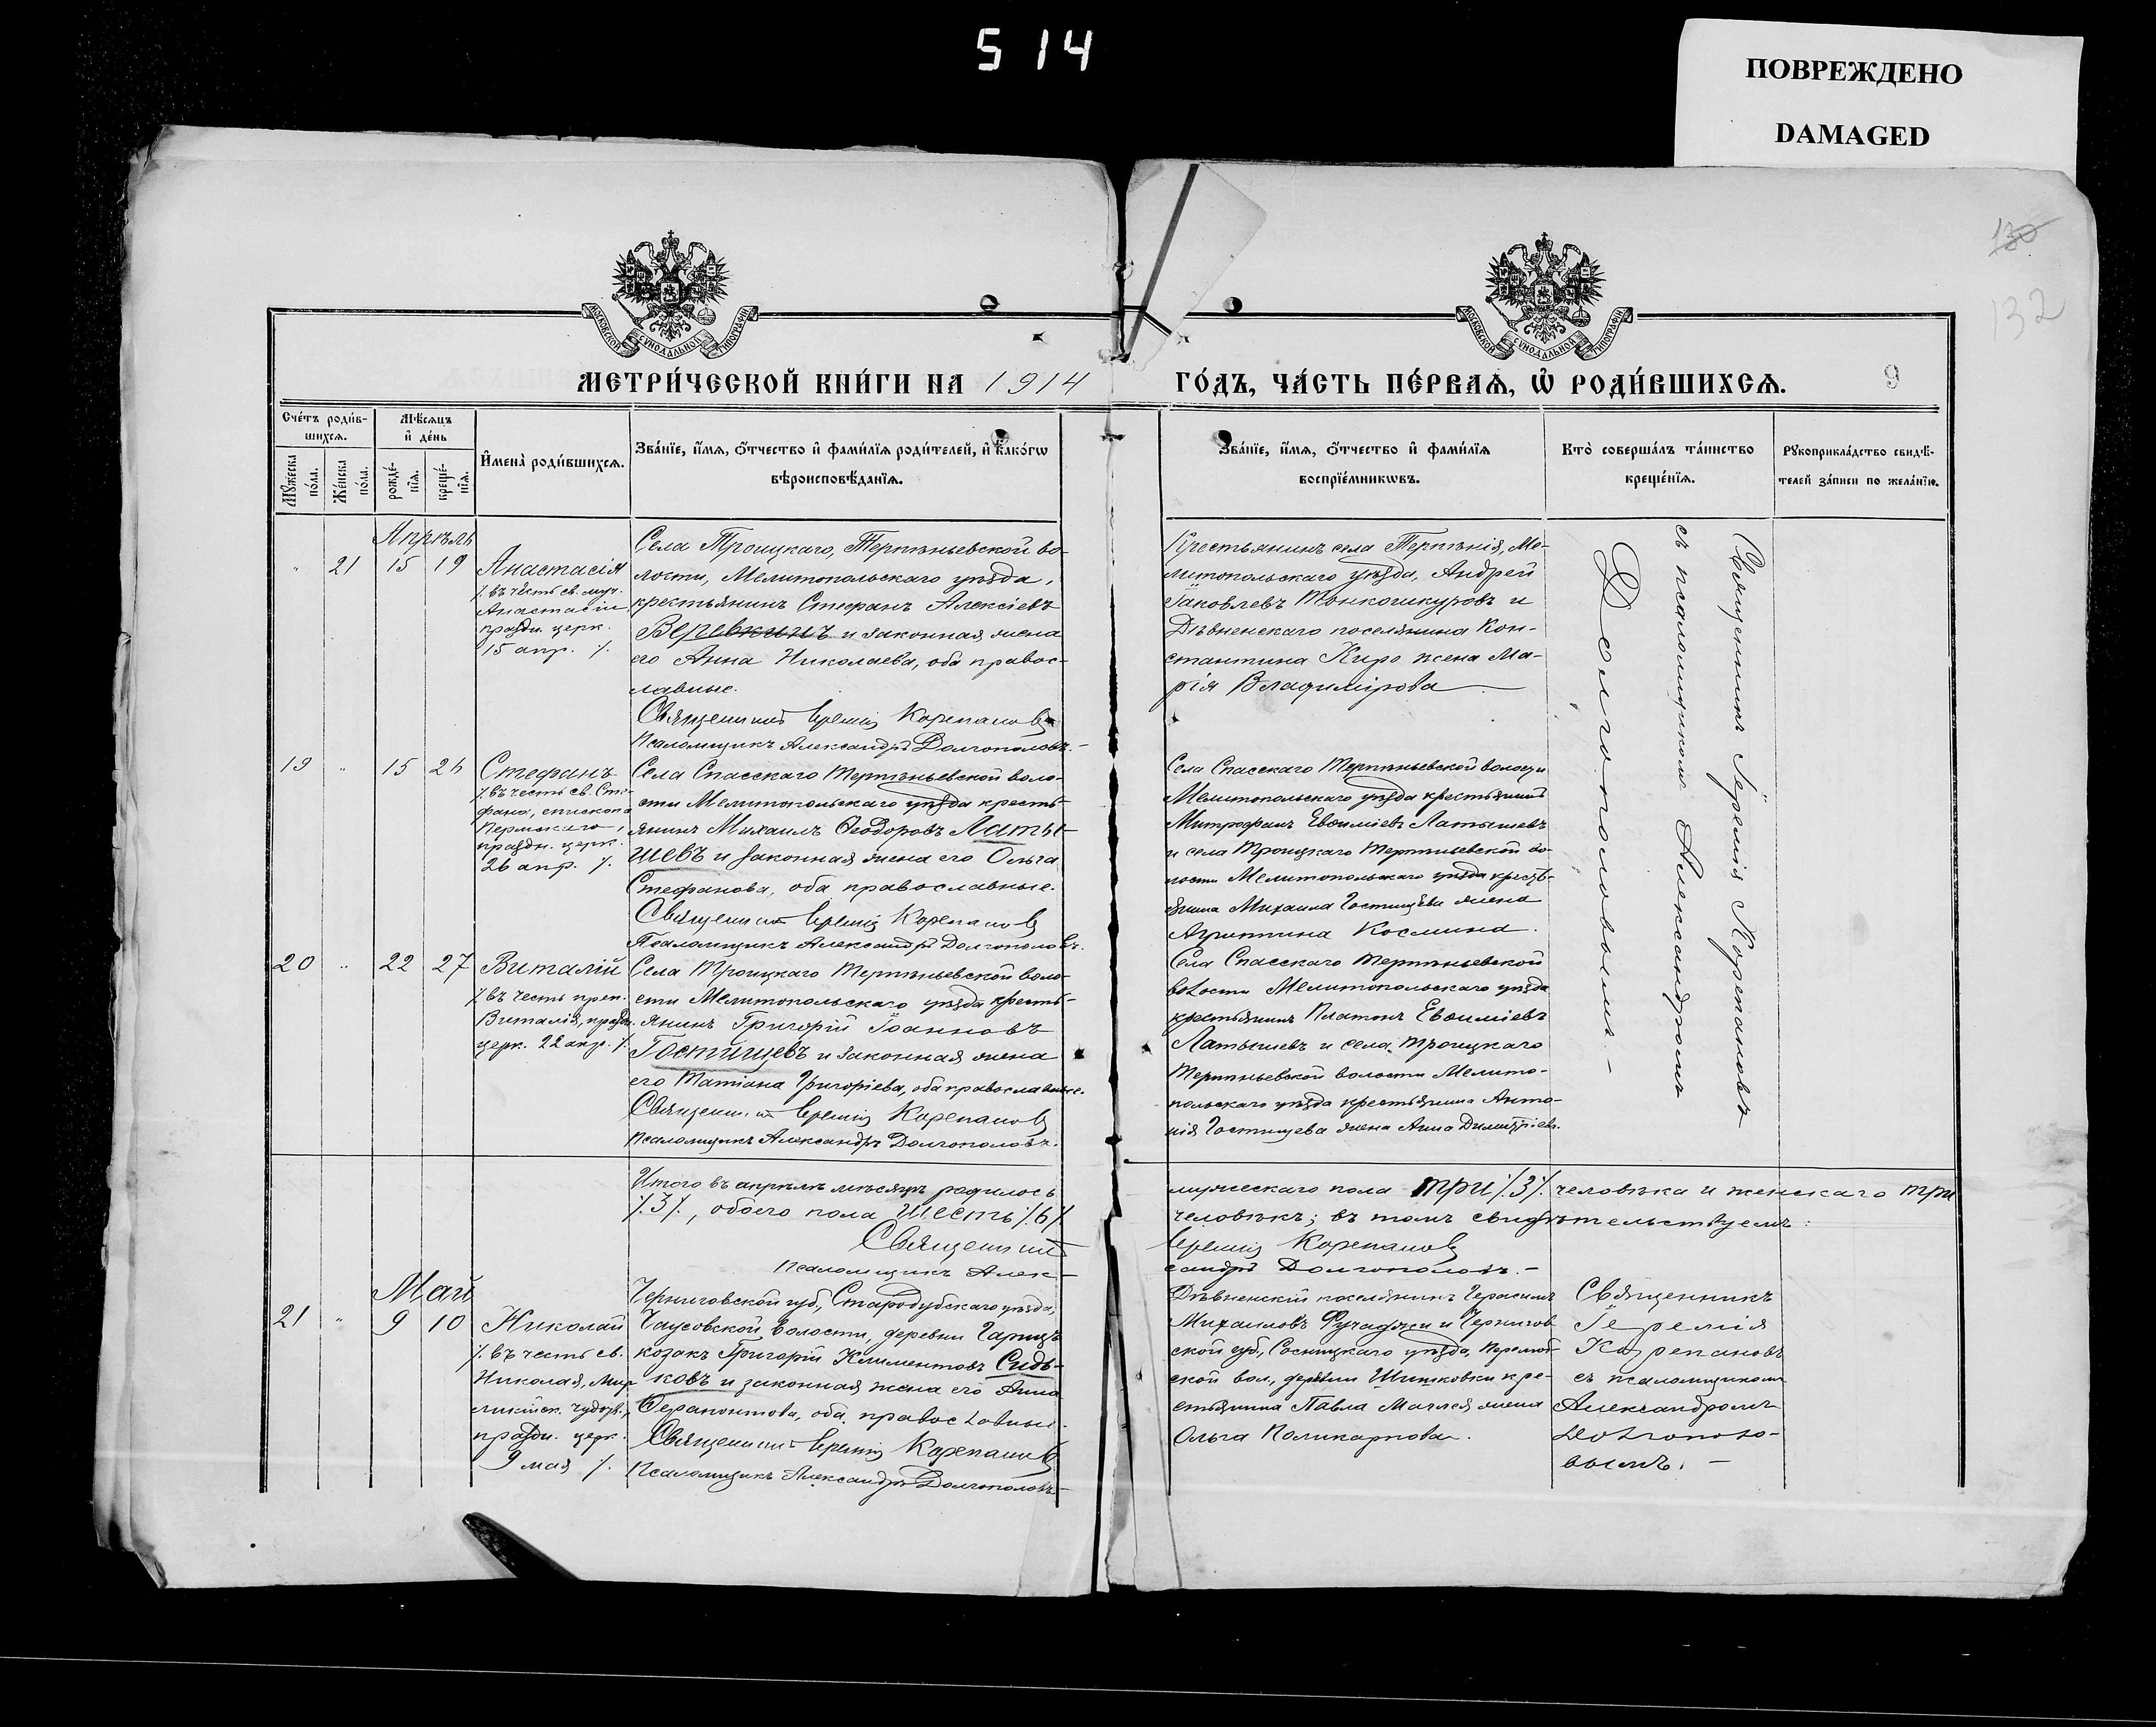 514
ПОВРЕЖДЕНО
DAMAGED
130
132
МОСКОВСКОЙ СѴНОДАЛЬНОЙ ТИПОГРАФІИ
МОСКОВСКОЙ СѴНОДАЛЬНОЙ ТИПОГРАФІИ
МЕТРИ́ЧЕСКОЙ КНИ́ГИ НА 1914
ГО́ДЪ, ЧА́СТЬ ПЕ́РВАѦ, Ѡ҆ РОДИ́ВШИХСѦ.
9
Сче́тъ роди́в-
шихсѧ.
Мꙋжеска по́ла.
Же́нска по́ла.
Мѣ́сѧцъ
и҆ де́нь
рожде́-
нїѧ.
креще́-
нїѧ.
И҆мена̀ роди́вшихсѧ.
Зва́нїе, и҆́мѧ, ѻ҆́тчество и҆ фами́лїѧ роди́телей, и҆ како́гѡ
вѣроисповѣ́данїѧ.
Зва́нїе, и҆́мѧ, ѻ҆́тчество и҆ фами́лїѧ
воспрїе́мникѡвъ.
Кто̀ соверша́лъ та́инство
креще́нїѧ.
Рꙋкоприкла́дство свидѣ́-
телей за́писи по жела́нїю.
Апрѣль
" 21 15 19
Анастасія
∕. въ честь св. муч.
Анастасіи
праздн. церк.
15 апр. ∕.
Села Троицкаго, Терпѣньевской во-
лости, Мелитопольскаго уѣзда,
крестьянинъ Стефанъ Алексіевъ
Веревкинъ и законная жена
его Анна Николаева, оба правос-
лавные.
Священникъ Іеремія Корепановъ
Псаломщикъ Александръ Долгополовъ.-
Крестьянинъ села Терпѣнія, Ме-
литопольскаго уѣзда, Андрей
Іаковлевъ Тонкошкуровъ и
Дѣвненскаго поселянина Кон-
стантина Киро жена Ма-
рія Владимірова
Священникъ Іеремія Корепановъ
съ псаломщикомъ Александромъ
Долгополовымъ.-
19 " 15 26
Стефанъ
∕. въ честь св. Сте-
фана, епископа
Пермскаго,
праздн. церк.
26 апр. ∕.
Села Спасскаго Терпѣньевской воло-
сти Мелитопольскаго уѣзда кресть-
янинъ Михаилъ Ѳеодоровъ Латы-
шевъ и законная жена его Ольга
Стефанова, оба православные.
Священникъ Іеремія Корепановъ
Псаломщикъ Александръ Долгополовъ.
Села Спасскаго Терпѣньевской волости
Мелитопольскаго уѣзда крестьянинъ
Митрофанъ Евѳиміевъ Латышевъ
и села Троицкаго Терпѣньевской во-
лости Мелитопольскаго уѣзда кресть-
янина Михаила Гостищева жена
Агриппина Космина.
20 " 22 27
Виталій
∕. въ честь преп.
Виталія, праздн.
церк. 22 апр. ∕.
Села Троицкаго Терпѣньевской воло-
сти Мелитопольскаго уѣзда кресть-
янинъ Григорій Іоанновъ
Гостищевъ и законная жена
его Татіана Григоріева, оба православные.
Священникъ Іеремія Корепановъ
Псаломщикъ Александръ Долгополовъ.
Села Спасскаго Терпѣньевской
волости Мелитопольскаго уѣзда
крестьянинъ Платонъ Евѳиміевъ
Латышевъ и села Троицкаго
Терпѣньевской волости Мелито-
польскаго уѣзда крестьянина Анто-
нія Гостищева жена Анна Димитріева.
Итого въ апрѣлѣ мѣсяцѣ родилось
мужескаго пола три ∕.3∕. человѣка и женскаго три
∕.3∕., обоего пола шесть ∕.6∕.
человѣкъ; въ томъ свидѣтельствуемъ:
Священникъ
Іеремія Корепановъ
Псаломщикъ Алек-
сандръ Долгополовъ.-
Май
21 " 9 10
Николай
∕. въ честь св.
Николая, Мир
ликійск. чудотв.,
праздн. церк.
9 мая ∕.
Черниговской губ., Стародубскаго уѣзда,
Чаусовской волости, деревни Гарицъ
козакъ Григорій Климентовъ Сидь-
ковъ и законная жена его Анна
Ѳерапонтова, оба православные.
Священникъ Іеремія Корепановъ
Псаломщикъ Александръ Долгополовъ-
Дѣвненскій поселянинъ Герасимъ
Михаиловъ Фучаджи и Чернигов
ской губ., Сосницкаго уѣзда,
ской вол., деревни Шишковки кре-
стьянина Павла жена
Ольга Поликарпова.
Священникъ
Іеремія
Корепановъ
съ псаломщикомъ
Александромъ
Долгополо-
вымъ. -